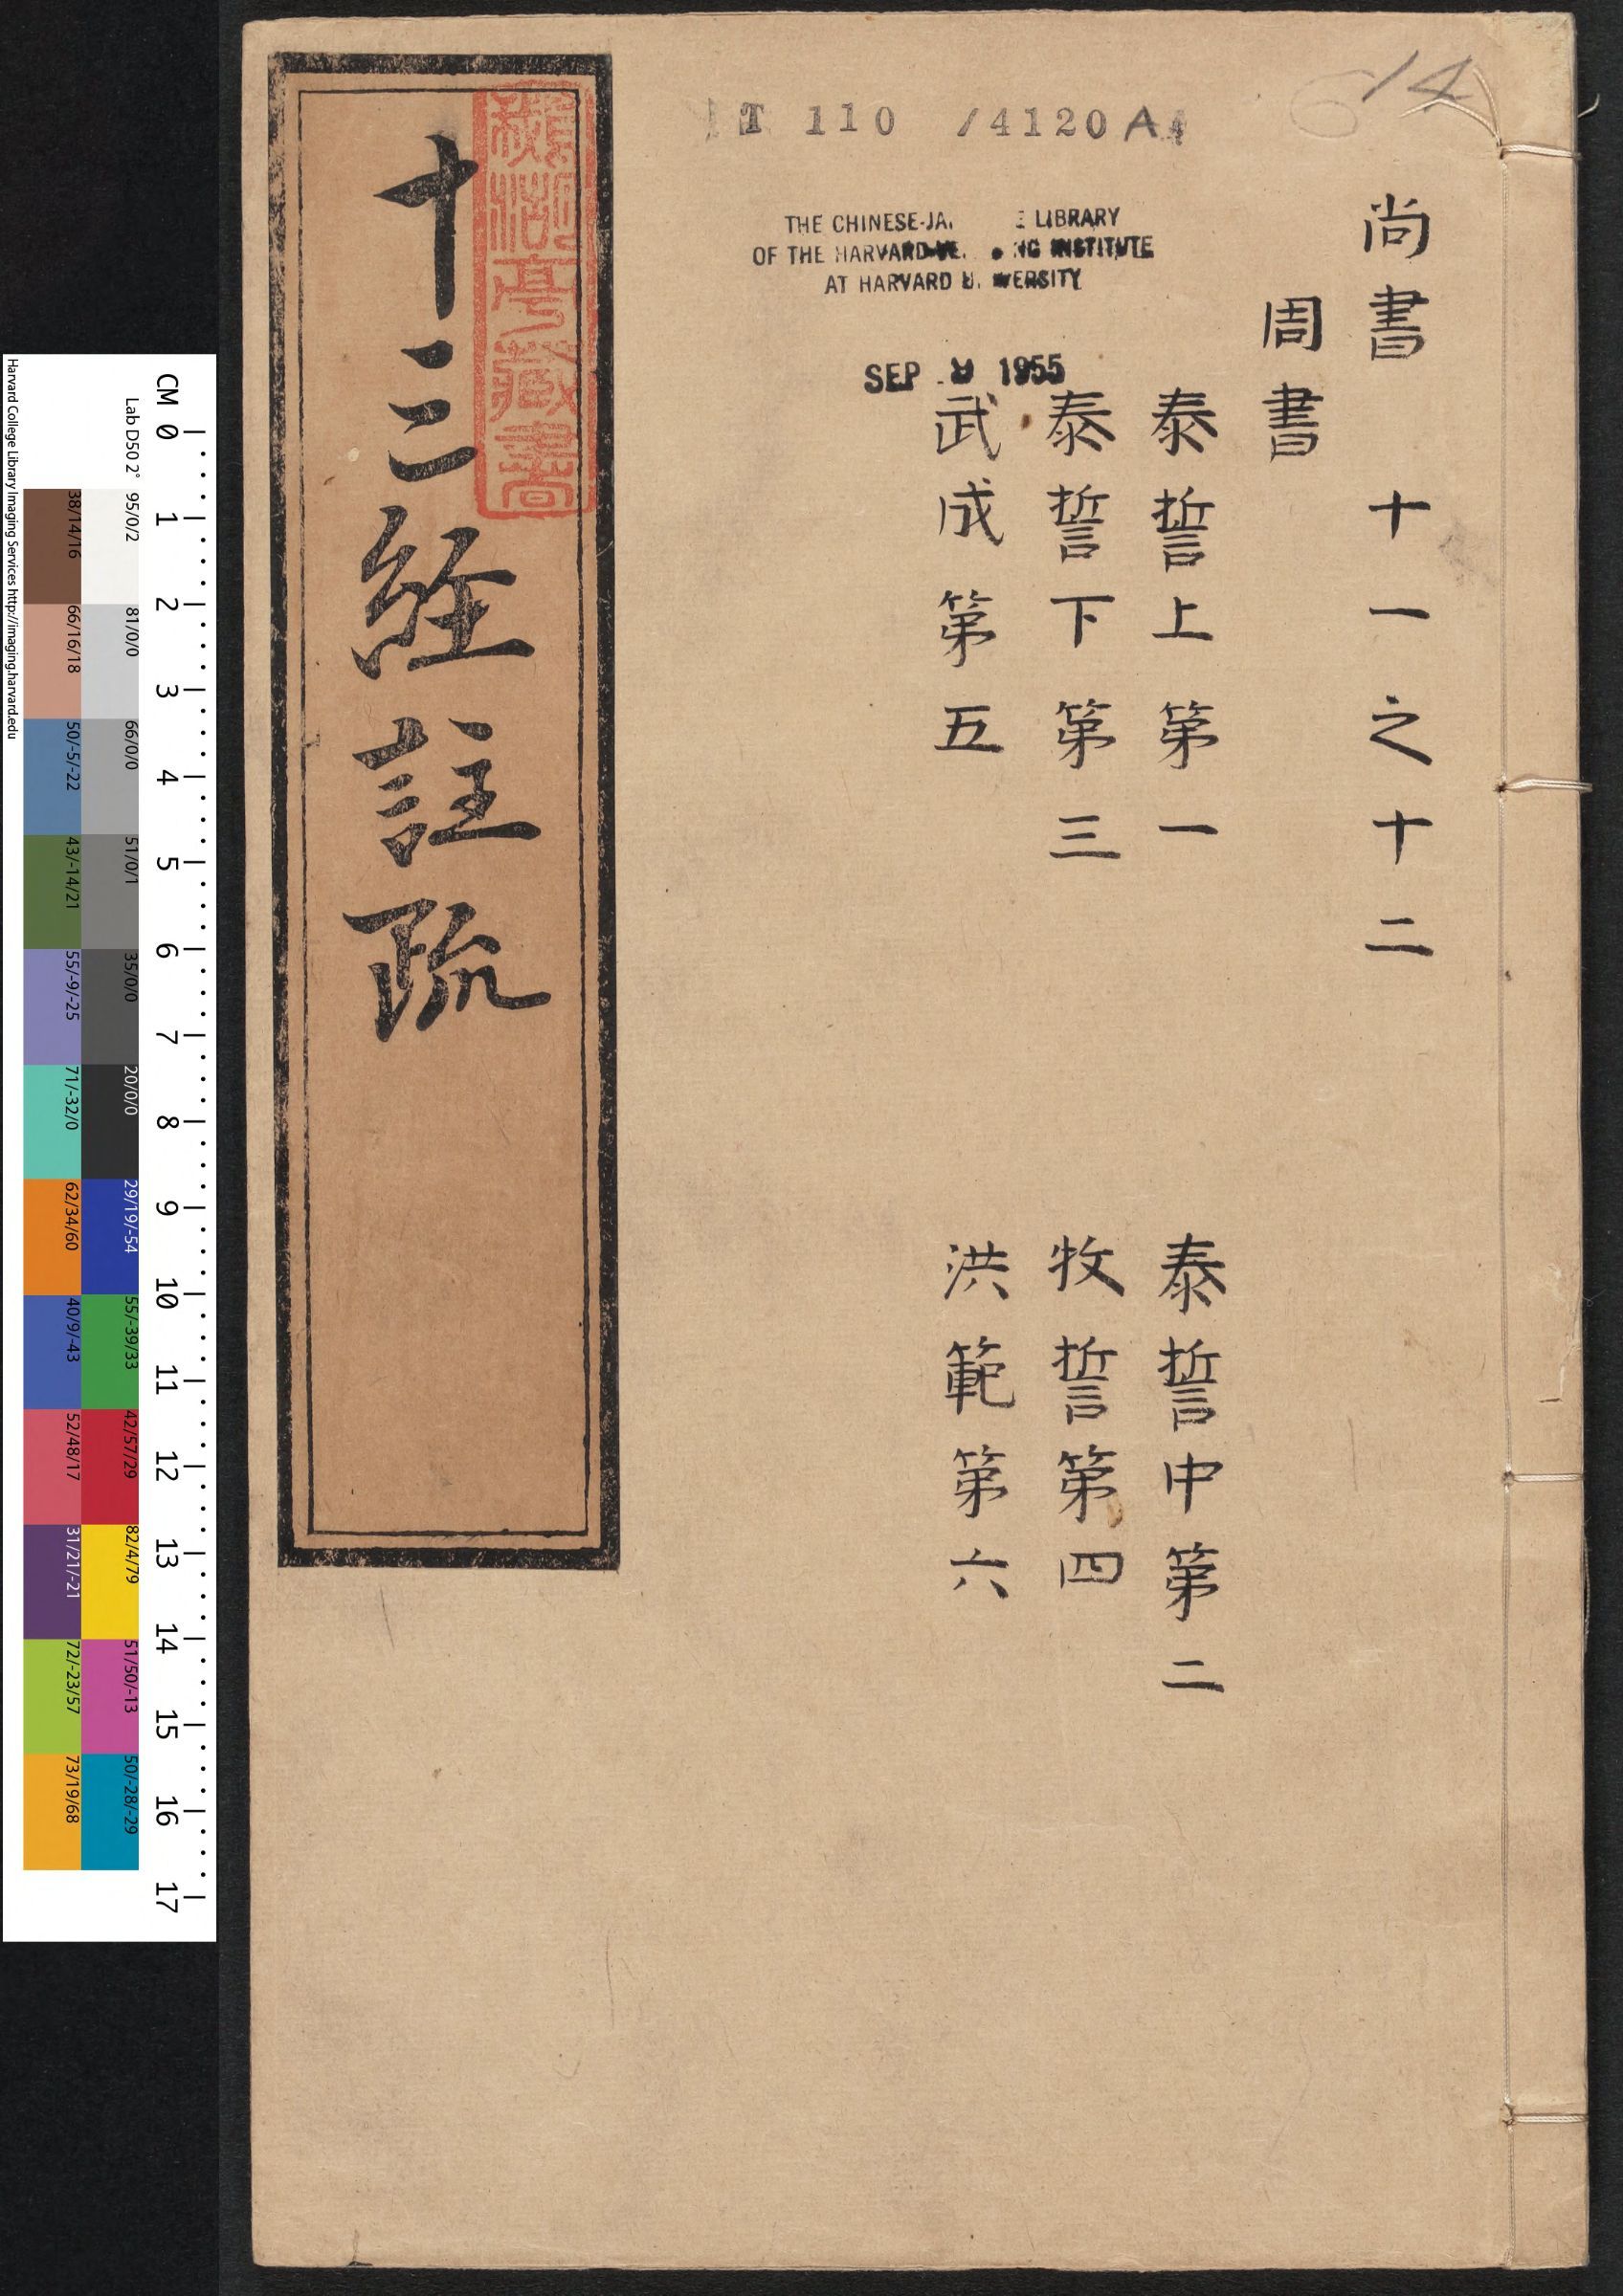 尚書 十一之十二
周書
泰誓上第一 泰誓中第二
泰誓下第三 牧誓第四
武成第五 洪範第六
十三經註疏
藏書
T 110 /4120 A
14
THE CHINESE-JA E LIBRARY
OF THE HARVARD NG INSTITUTE
AT HARVARD U ERSITY
SEP 9 1955
CM 0 1 2 3 4 5 6 7 8 9 10 11 12 13 14 15 16 17
Lab D50 2° 95/0/2 81/0/0 66/0/0 51/0/1 35/0/0 20/0/0 29/19/-54 55/-39/33 42/57/29 82/4/79 51/50/-13 50/-28/-29
38/14/16 66/16/18 50/-5/-22 43/-14/21 55/-9/-25 71/-32/0 62/34/60 40/9/-43 52/48/17 31/21/-21 72/-23/57 73/19/68
Harvard College Library Imaging Services http://imaging.harvard.edu